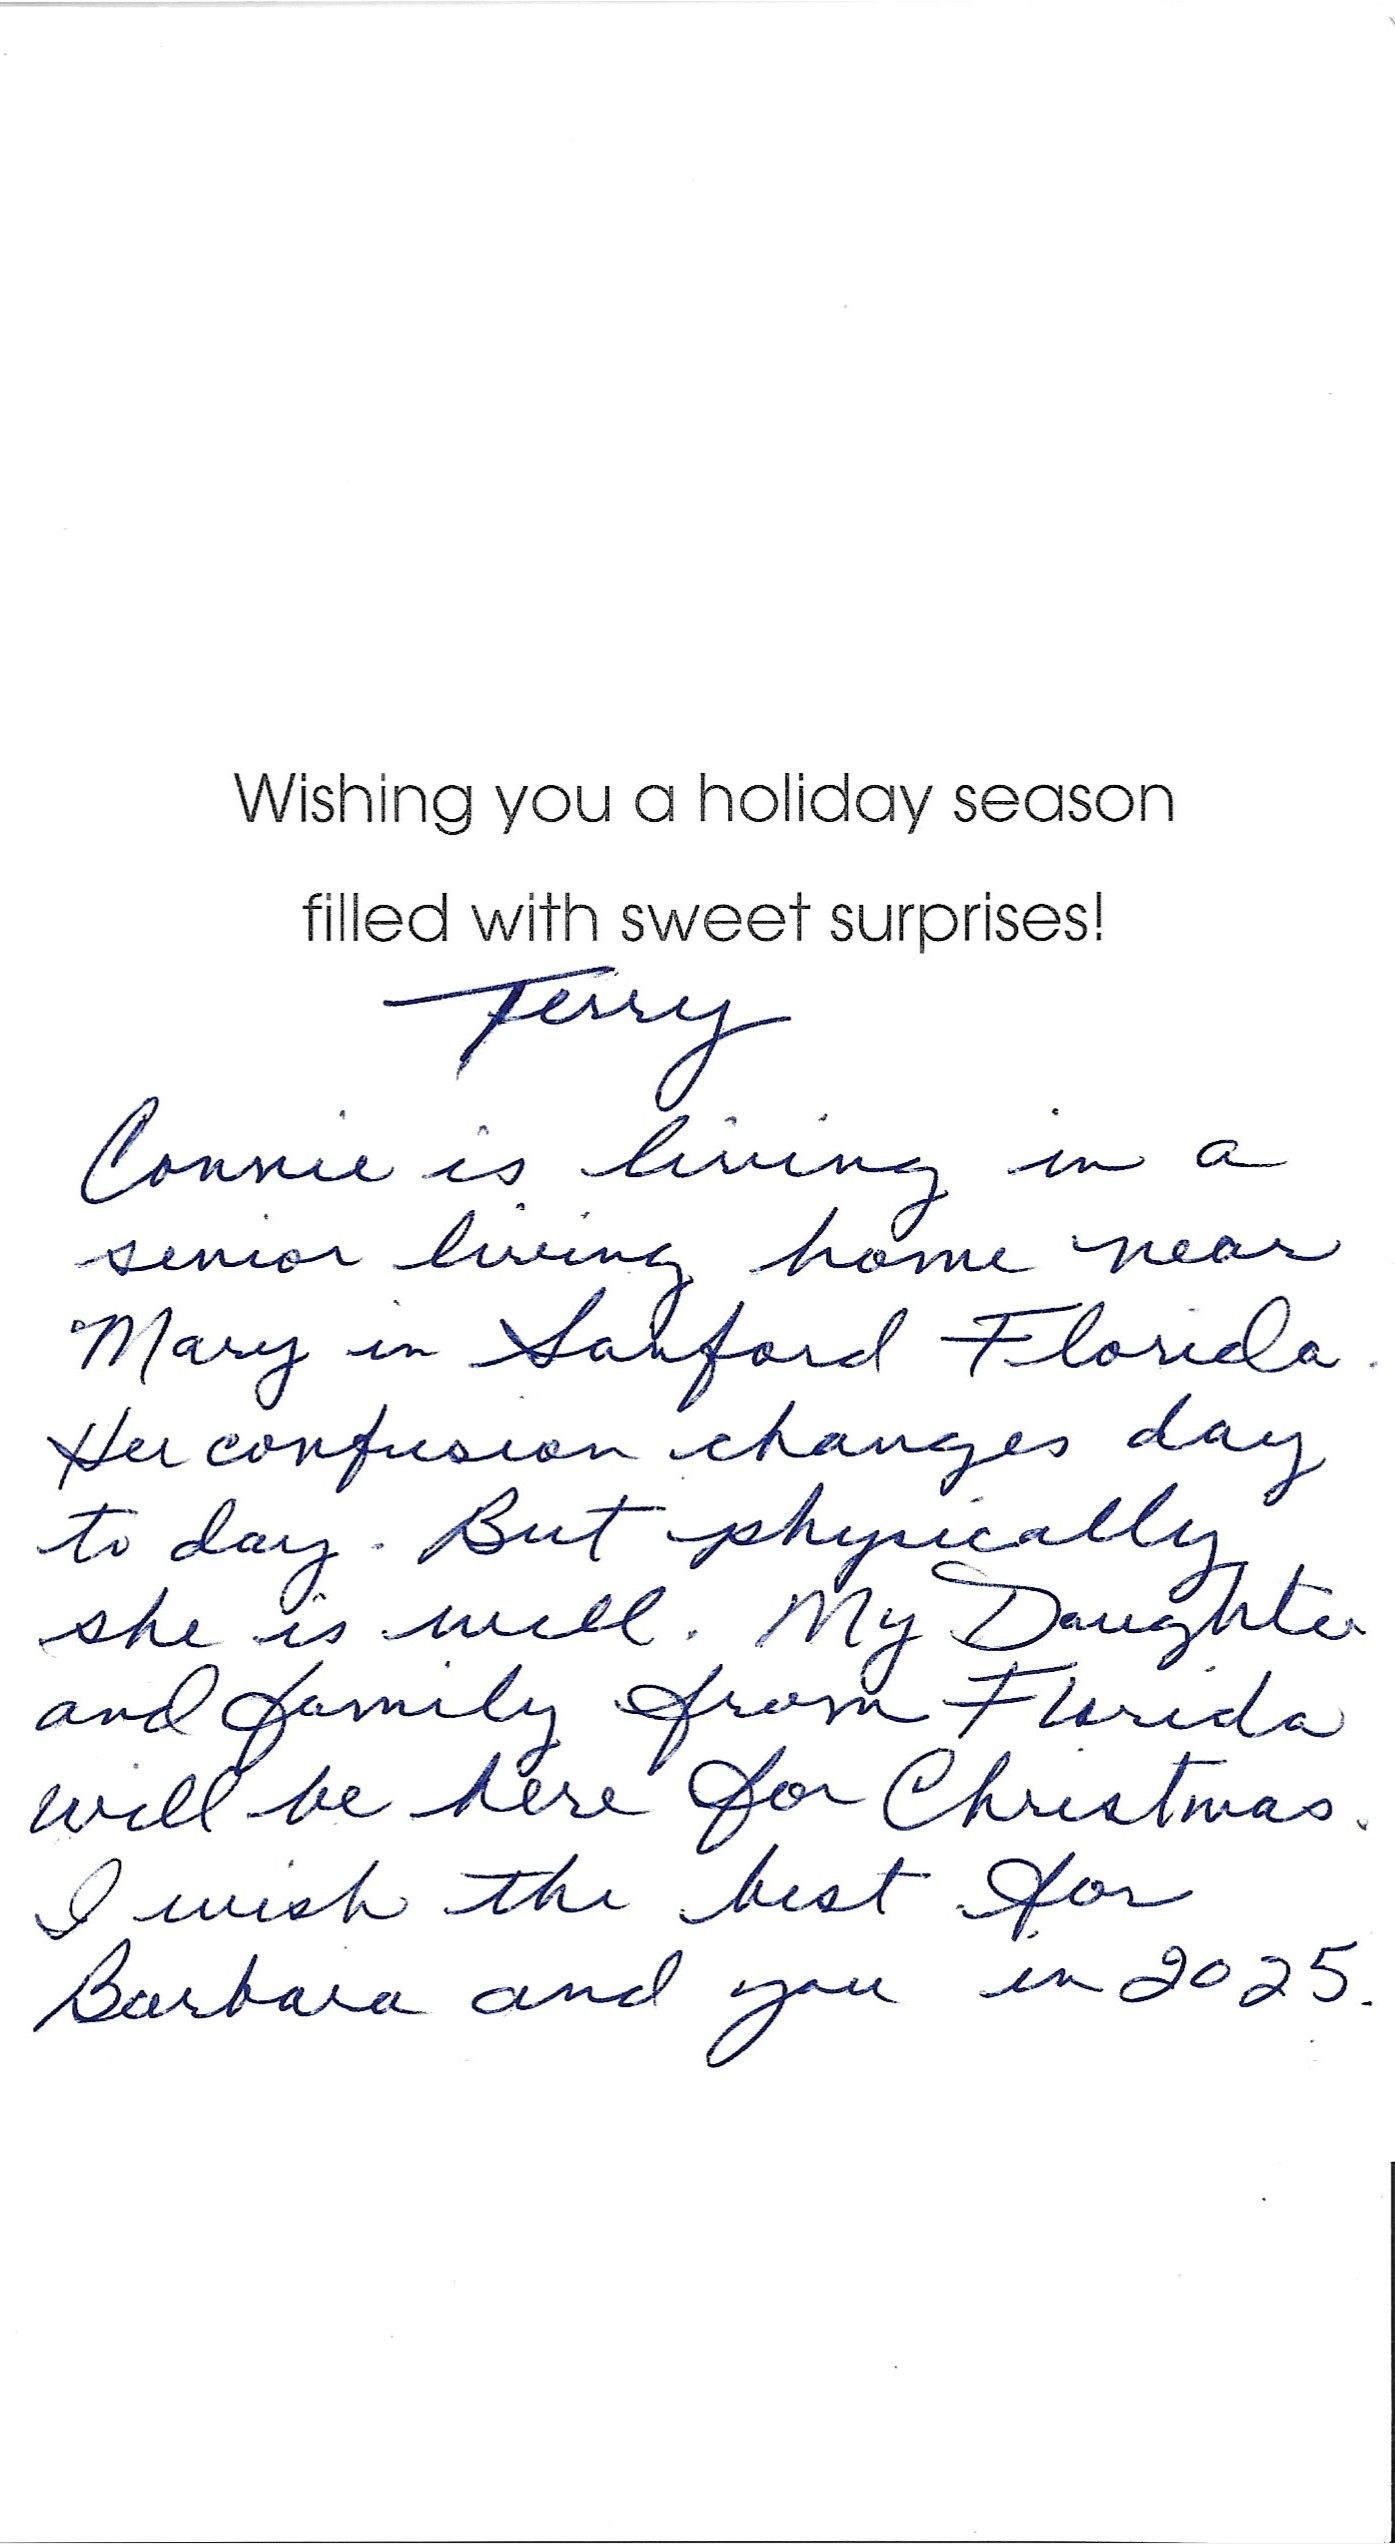 Wishing you a holiday season
filled with sweet surprises!
Terry
Connie is living in a
senior living home near
Mary in Sanford Florida.
Her confusion changes day
to day. But physically
she is well. My Daughter
and family from Florida
will be here for Christmas.
I wish the best for
Barbara and you in 2025.